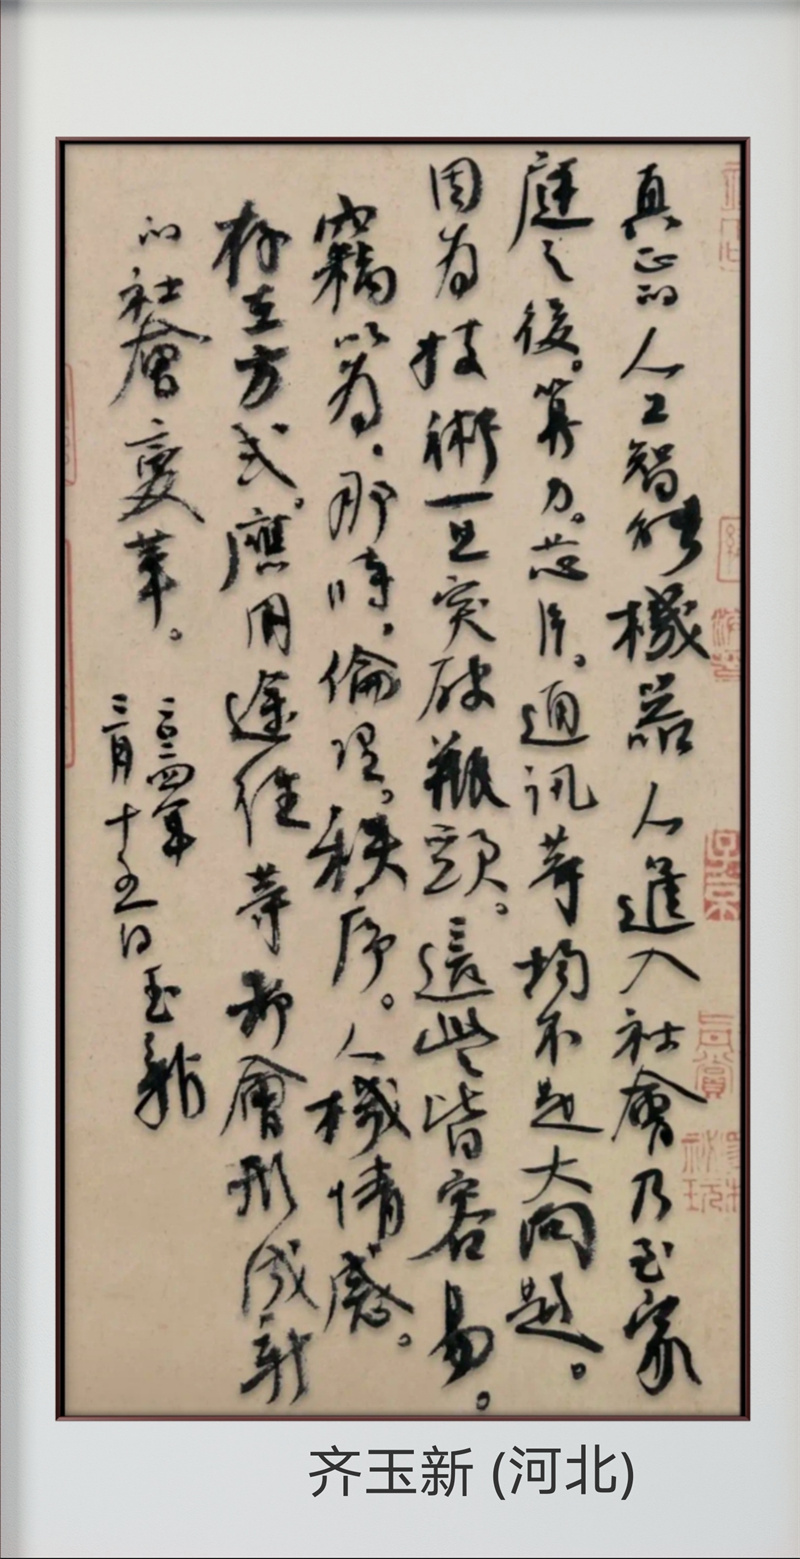 真正的人工智能機器人進入社會乃至家
庭之後。算力。芯片。通讯等均不是大问题。
因为技術一旦突破瓶頸。這些皆容易。
竊以为,那時,倫理。秩序。人機情感。
存在方式。應用途径等都會形成新
的社會变革。
二〇二四年
二月十五日玉新
齐玉新 (河北)